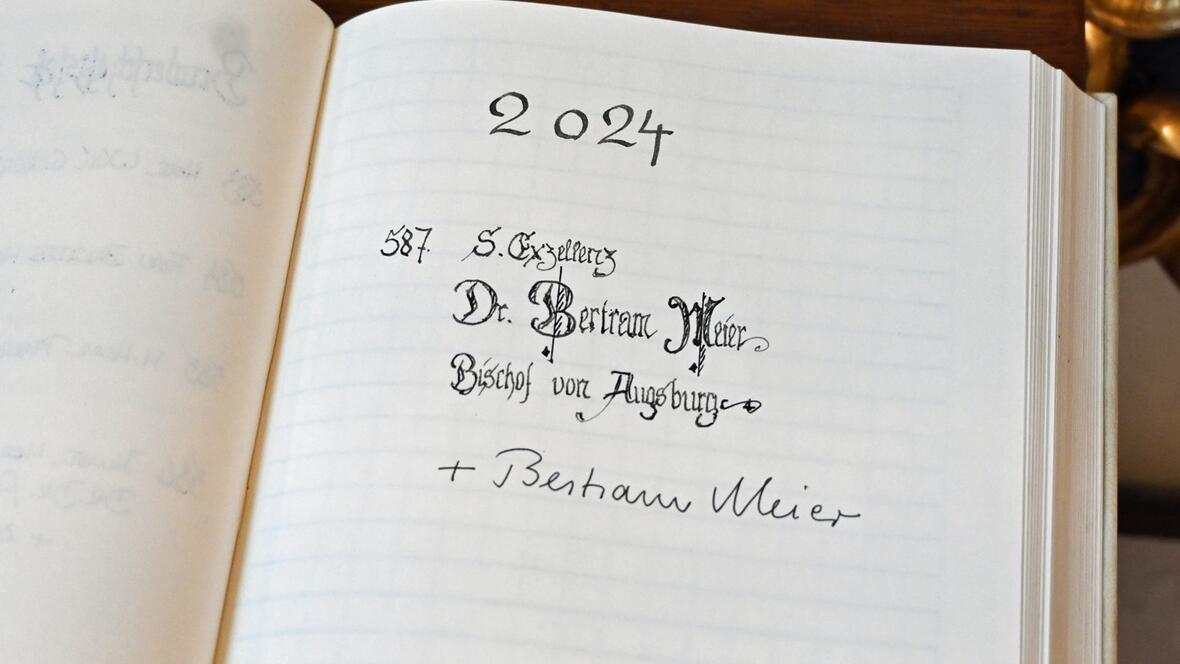 2024
587. S. Exzellenz
Dr. Bertram Meier
Bischof von Augsburg
+ Bertram Meier